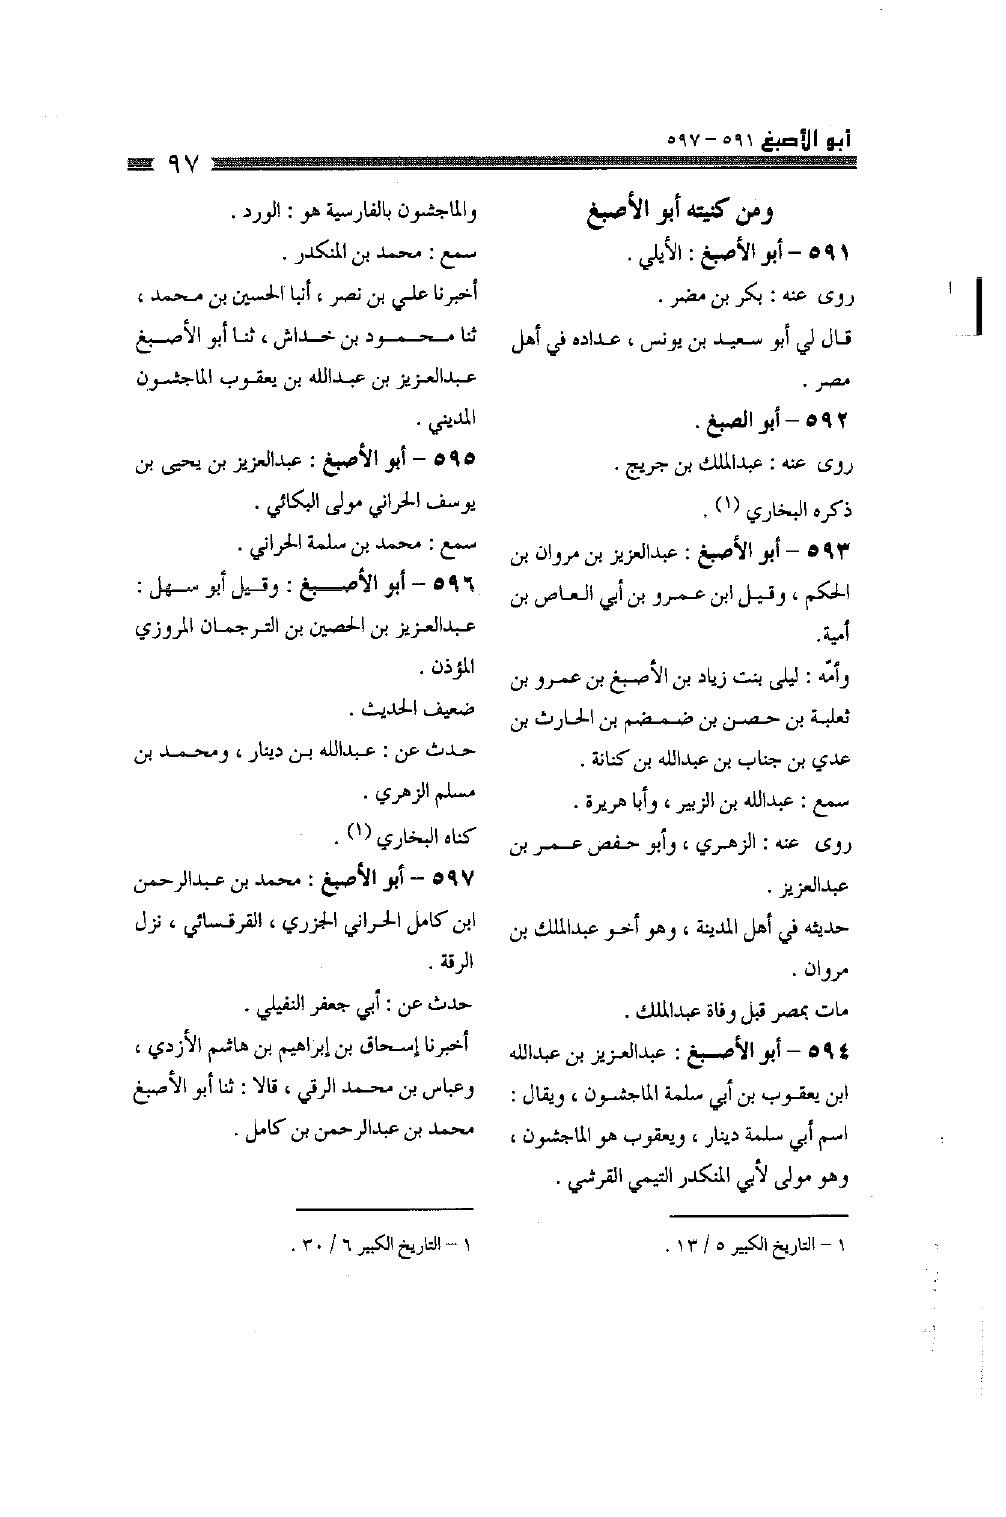 أبو الأصبغ ٥٩١ – ٥٩٧
٩٧
ومن كنيته أبو الأصبغ
٥٩١ – أبو الأصبغ : الأيلي .
روى عنه : بكر بن مضر .
قال لي أبو سعيد بن يونس ، عداده في أهل
مصر .
٥٩٢ – أبو الصبغ .
روى عنه : عبدالملك بن جريج .
ذكره البخاري (١) .
٥٩٣ – أبو الأصبغ : عبدالعزيز بن مروان بن
الحكم ، وقيل ابن عمرو بن أبي العاص بن
أمية.
وأمّه : ليلى بنت زياد بن الأصبغ بن عمرو بن
ثعلبة بن حصن بن ضمضم بن الحارث بن
عدي بن جناب بن عبدالله بن كنانة .
سمع : عبدالله بن الزبير ، وأبا هريرة .
روى عنه : الزهري ، وأبو حفص عمر بن
عبدالعزيز .
حديثه في أهل المدينة ، وهو أخو عبدالملك بن
مروان .
مات بمصر قبل وفاة عبدالملك .
٥٩٤ – أبو الأصبغ : عبدالعزيز بن عبدالله
ابن يعقوب بن أبي سلمة الماجشون ، ويقال :
اسم أبي سلمة دينار ، ويعقوب هو الماجشون ،
وهو مولى لأبي المنكدر التيمي القرشي .
١ – التاريخ الكبير ٥ / ١٣ .
والماجشون بالفارسية هو : الورد .
سمع : محمد بن المنكدر .
أخبرنا علي بن نصر ، أنبا الحسين بن محمد ،
ثنا محمود بن خداش ، ثنا أبو الأصبغ
عبدالعزيز بن عبدالله بن يعقوب الماجشون
المديني .
٥٩٥ – أبو الأصبغ : عبدالعزيز بن يحيى بن
يوسف الحراني مولى البكائي .
سمع : محمد بن سلمة الحراني .
٥٩٦ – أبو الأصبغ : وقيل أبو سهل :
عبدالعزيز بن الحصين بن الترجمان المروزي
المؤذن .
ضعيف الحديث .
حدث عن : عبدالله بن دينار ، ومحمد بن
مسلم الزهري .
كناه البخاري (١) .
٥٩٧ – أبو الأصبغ : محمد بن عبدالرحمن
ابن كامل الحراني الجزري ، القرقسائي ، نزل
الرقة .
حدث عن : أبي جعفر النفيلي .
أخبرنا إسحاق بن إبراهيم بن هاشم الأزدي ،
وعباس بن محمد الرقي ، قالا : ثنا أبو الأصبغ
محمد بن عبدالرحمن بن كامل .
١ – التاريخ الكبير ٦ / ٣٠ .